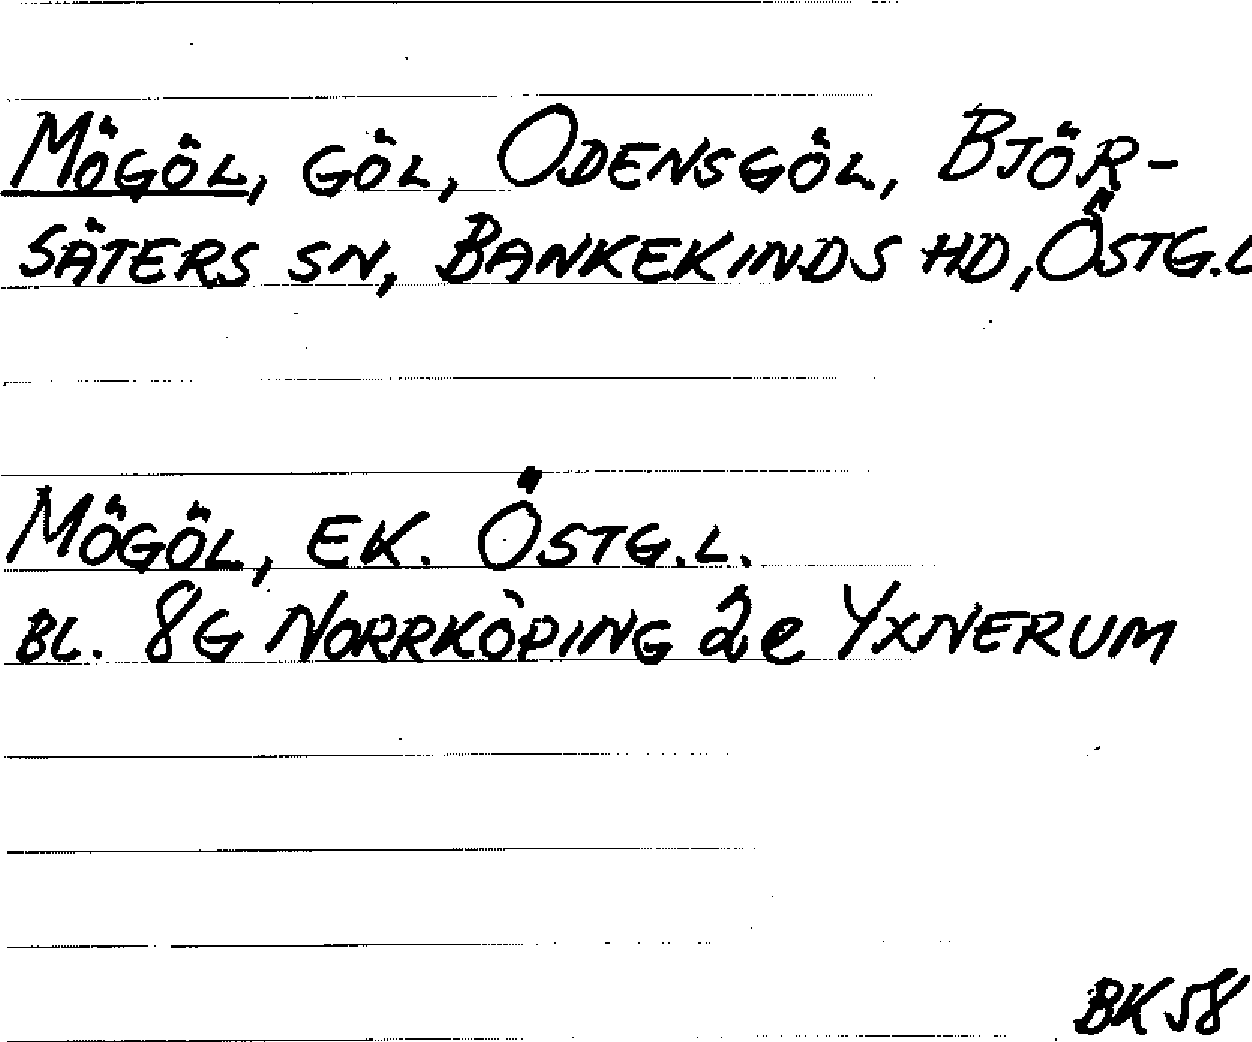 MÖGÖL, GÖL, ODENSGÖL, BJÖR-
SÄTERS SN, BANKEKINDS HD, ÖSTG.L
MÖGÖL, EK. ÖSTG.L.
BL. 8G NORRKÖPING 2e YXNERUM
BK58